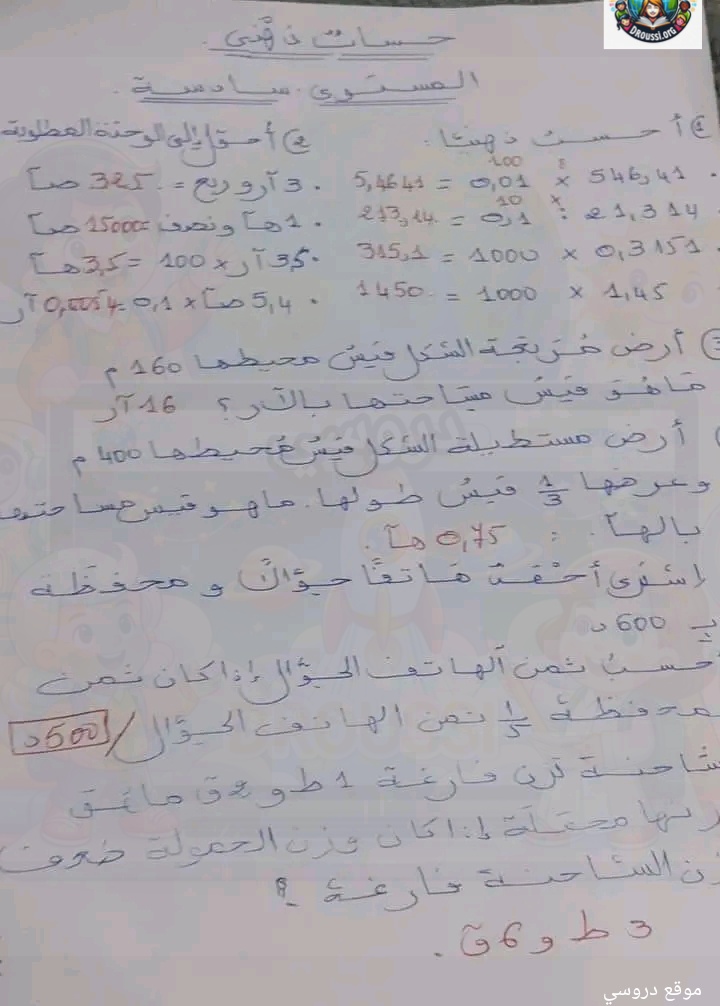 DROUSSI.ORG
حساب ذهني.
المستوى: سادسة.
1) أحسب ذهنيّا:
100
546,41 × 0,01 = 5,4641
10
21,314 : 0,1 = 213,14
0,3151 × 1000 = 315,1
1,45 × 1000 = 1450
2) أحوّل إلى الوحدة المطلوبة
3 آر وربع = 325 صآ
1 هآ ونصف = 15000 صآ
35 آر × 100 = 3,5 هآ
5,4 صآ × 0,1 = 0,0054 آر
3) أرض مربّعة الشكل قيس محيطها 160 م
ما هو قيس مساحتها بالآر؟ 16 آر
أرض مستطيلة الشكل قيس محيطها 400 م
وعرضها 1/3 قيس طولها. ما هو قيس مساحتها
بالهآ. : 0,75 هآ.
إشترى أحمد هاتفًا جوّالاً و محفظة
بـ 600 د
أحسبُ ثمن الهاتف الجوّال إذا كان ثمن
محفظة 1/5 ثمن الهاتف الجوّال / 500 د
شاحنة تزن فارغة 1 ط و 2 ق ما هو
وزنها محمّلة إذا كان وزن الحمولة ضعف
وزن الشاحنة فارغة ؟
3 ط و 6 ق.
موقع دروسي